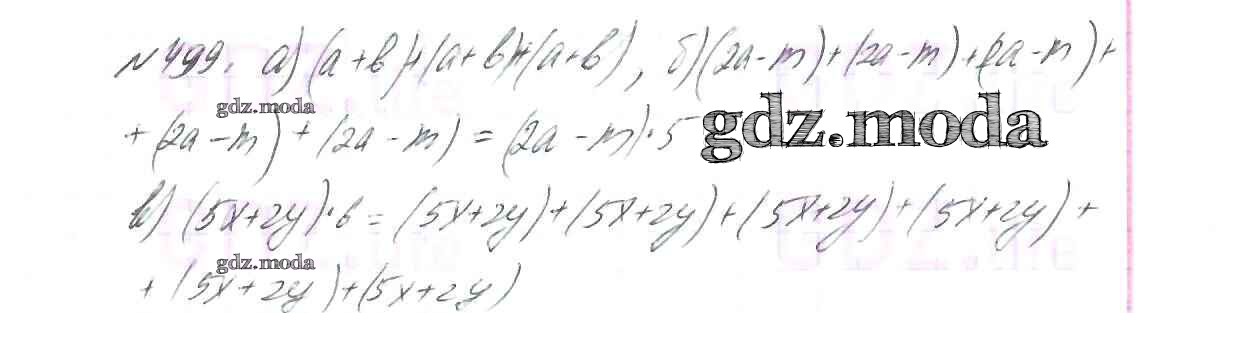 №499. а) (a+b)+(a+b)+(a+b), б) (2a-m)+(2a-m)+(2a-m)+
gdz.moda
+(2a-m)+(2a-m)=(2a-m)·5 gdz.moda
в) (5x+2y)·6=(5x+2y)+(5x+2y)+(5x+2y)+(5x+2y)+
gdz.moda
+(5x+2y)+(5x+2y)